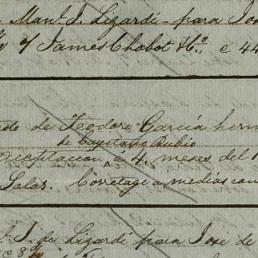 Man.l J. Lizardi para José
y James Chabot &Co. c 44
de Teodoro García herm
de Cayetano Rubio
aceptacion á 4 meses del
Salas. Corretage a medias con
J. de Lizardi para José de